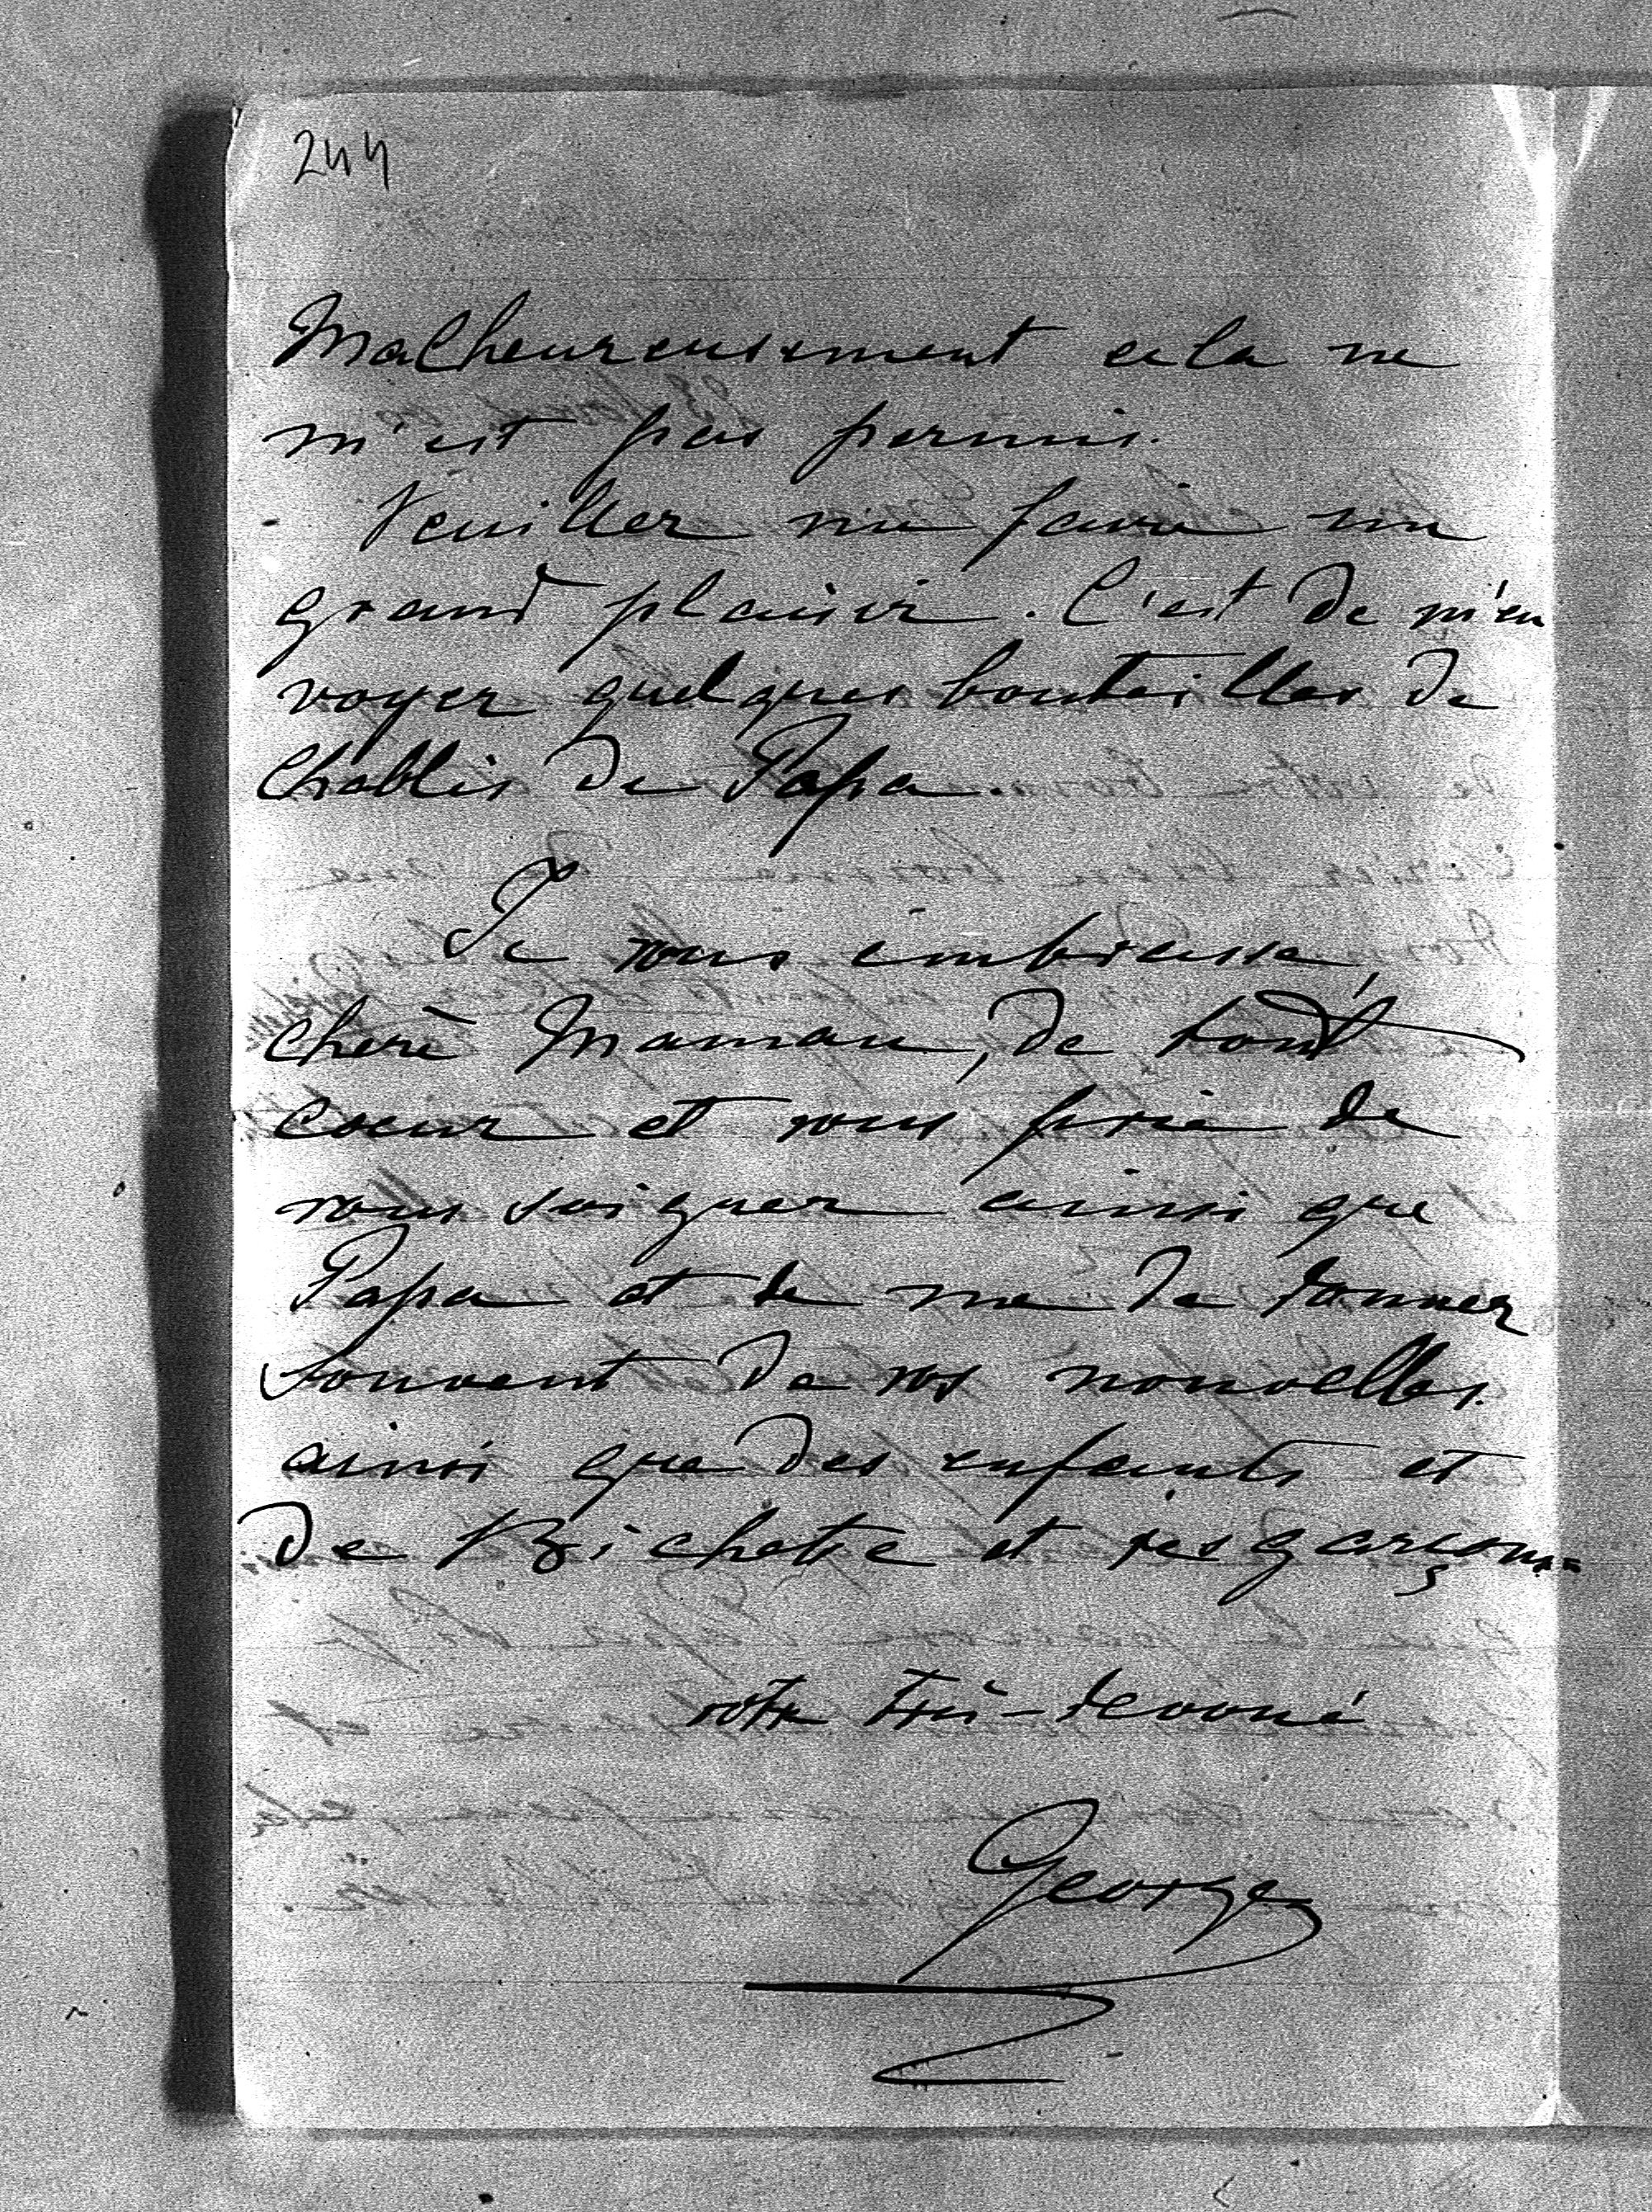 244
Malheureusement cela ne
m'est pas permis.
Veuillez me faire un
grand plaisir. C'est de m'en
voyer quelques bouteilles de
Chablis de Papa.
Je vous embrasse,
chère Maman, de tout
coeur et vous prie de
vous soigner ainsi que
Papa et de me de donner
souvent de vos nouvelles
ainsi que des enfants et
de Bichette et ses garçons.
votre très-devoué
Georges